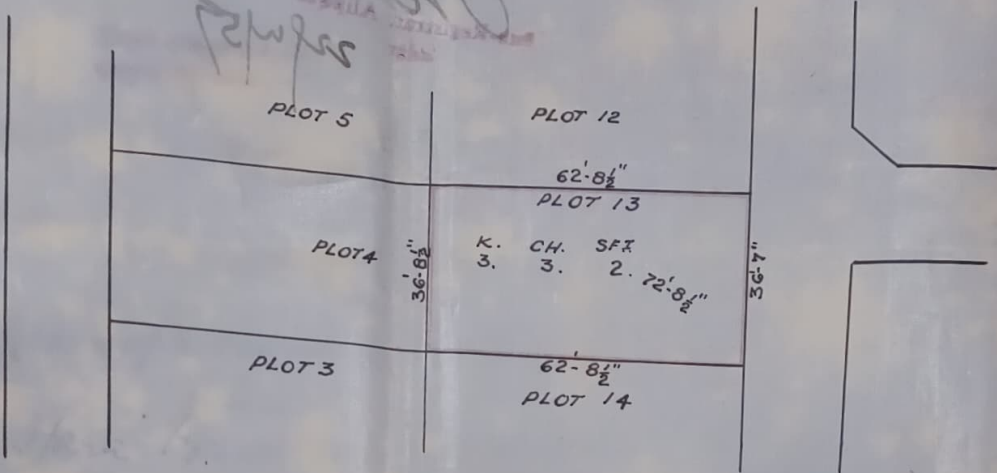 PLOT 5
PLOT 12
62'-8½"
PLOT 13
PLOT 4
36'-8½"
K. CH. SFT
3. 3. 2.
72'-8½"
36'-7"
PLOT 3
62'-8½"
PLOT 14